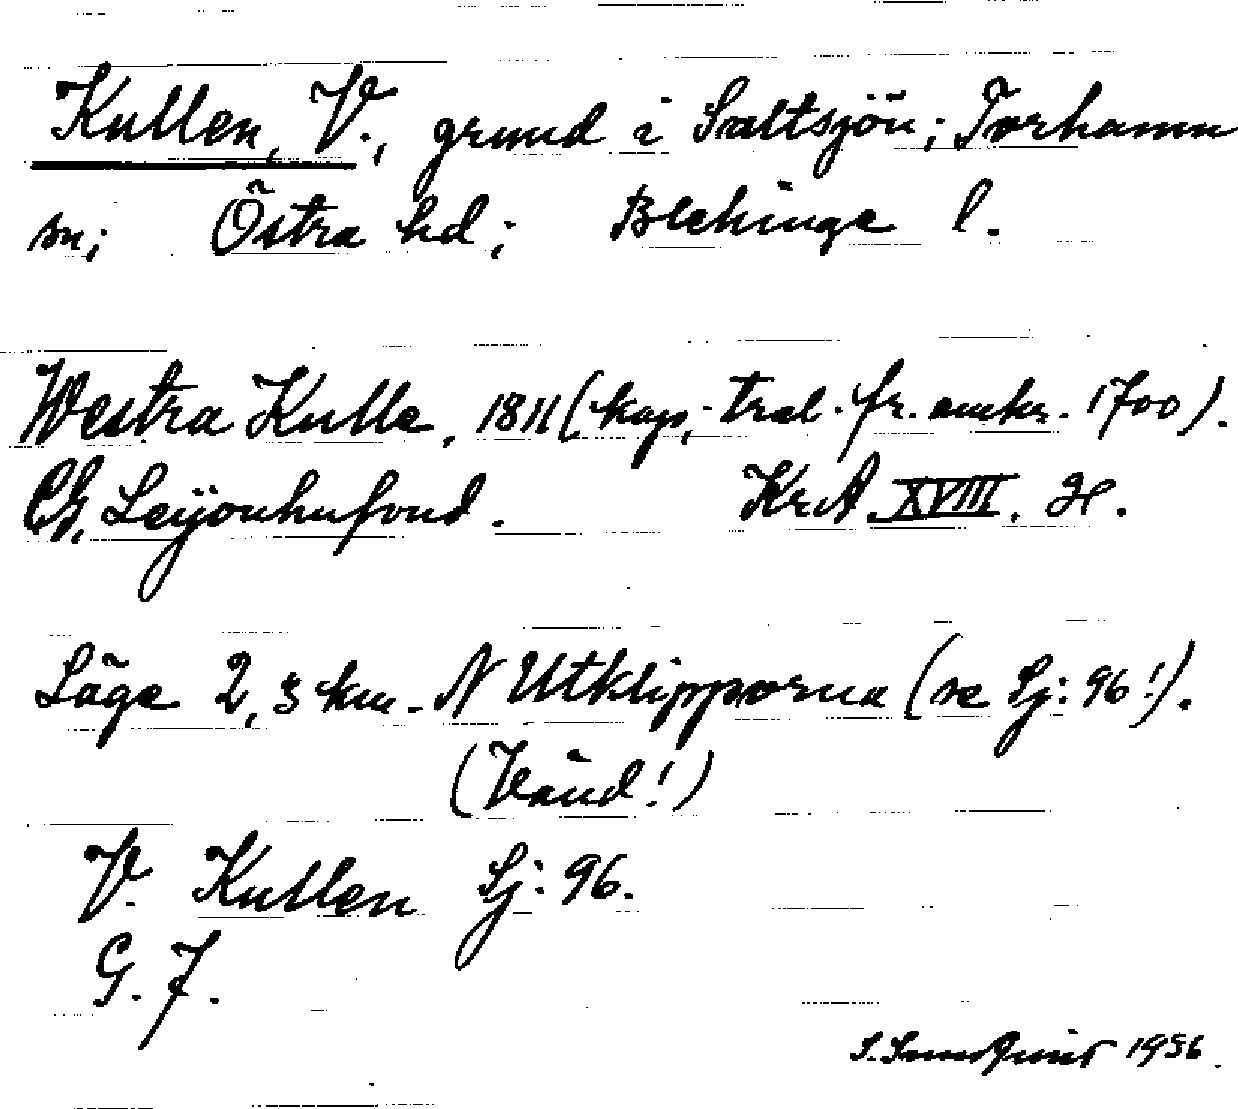 Kullen, V., grund i Saltsjön; Torhamn
sn; Östra hd; Blekinge l.
Westra Kulle, 1811 (kop, tral. fr. omkr. 1700).
Ch. Leijonhufvud. KrA XVIII. H.
Läge 2,3 km. N Utklipporna (se Sj: 96!).
(Vänd!)
V. Kullen Sj: 96.
G. F.
1956.